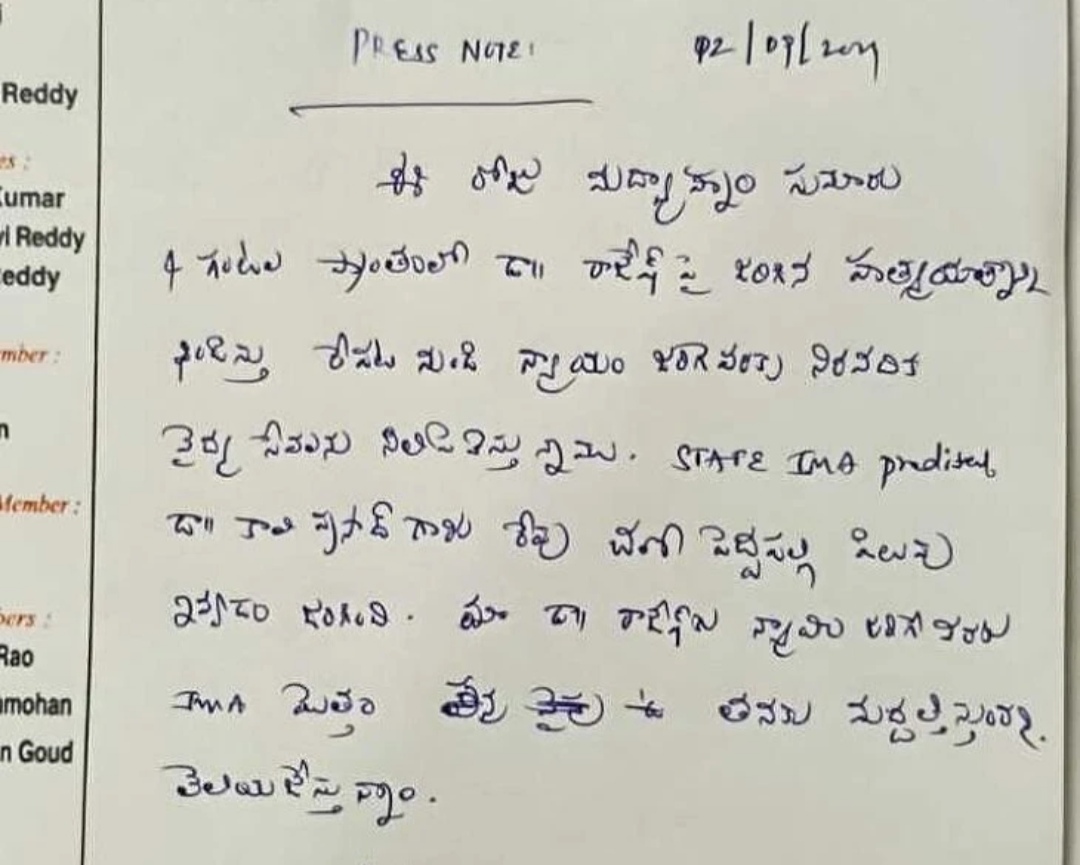 Reddy
es :
Kumar
vi Reddy
eddy
mber :
n
Member :
bers :
Rao
mohan
n Goud
PRESS NOTE:
ఈ రోజు మద్యాహ్నాం సుమారు
4 గంటల ప్రాంతంలో డా॥ రాజేష్ పై జరిగిన హత్యయత్నాన్ని
ఖండిస్తు రేపటి నుండి న్యాయం జరిగే వరకు నిరవదిక
వైద్య సేవలను నిలిపివేస్తున్నాము. STATE IMA
డా॥ కాళి ప్రసాద్ గారు రేపు చలో పెద్దపల్లి పిలుపు
ఇవ్వడం జరిగింది. మా డా॥ రాజేష్‌కు న్యాయం జరిగే వరకు
IMA మొత్తం తనకు మద్దతిస్తుందని.
తెలియజేస్తున్నాం.